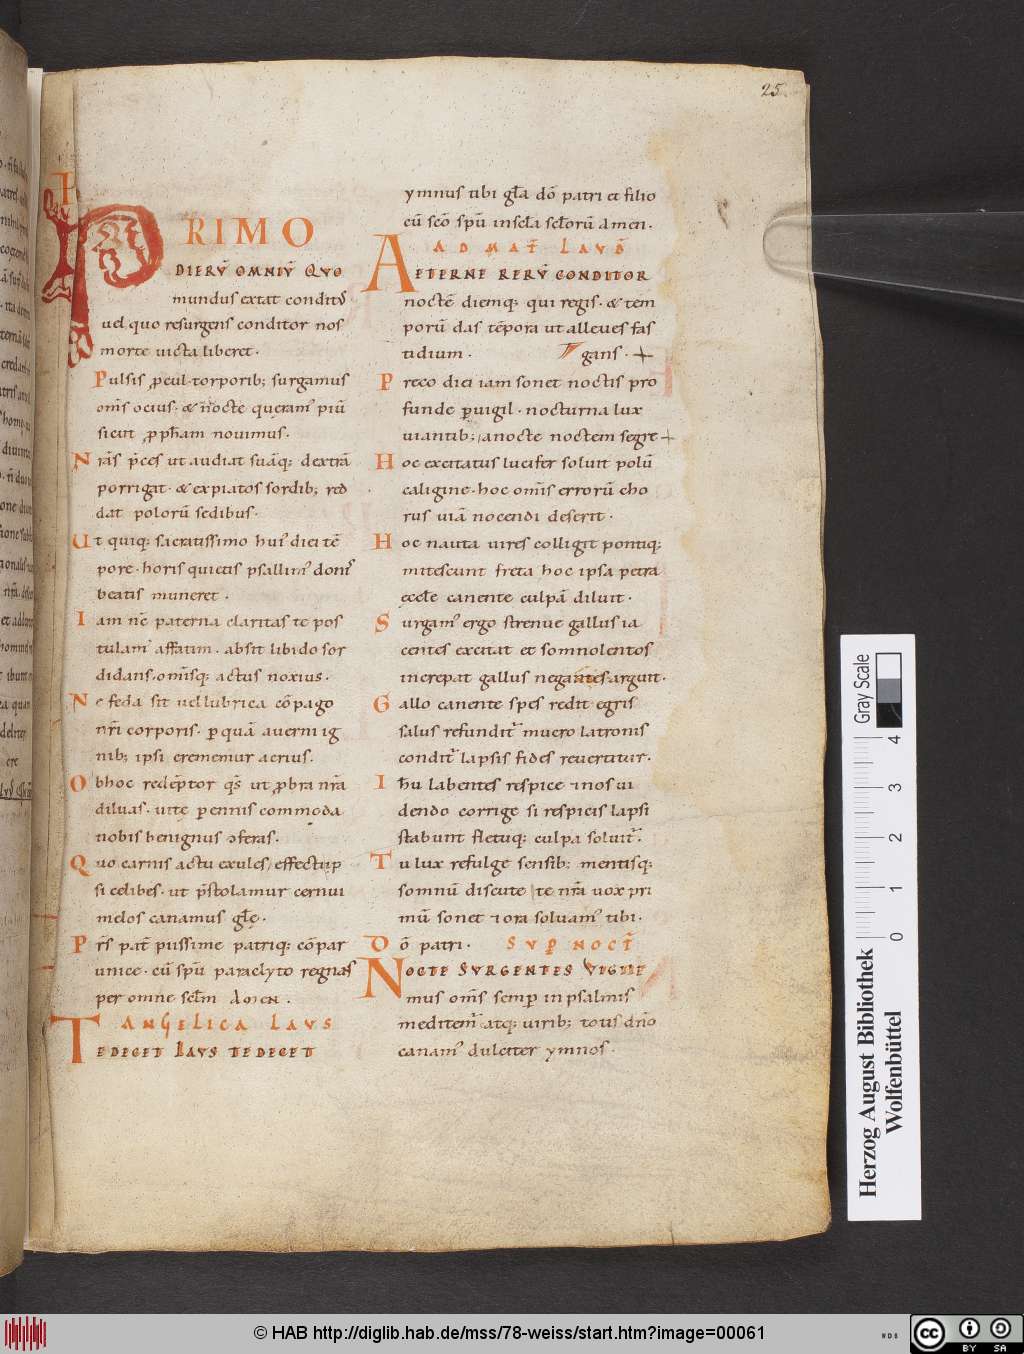 25.
PRIMO
DIERŪ OMNIŪ QVO
mundus extat conditꝰ
uel quo resurgens conditor nos
morte victa liberet.
Pulsis ꝓcul torporib; surgamus
om̄s ocius. & nocte queramꝰ piū
sicut ꝓph̄am novimus.
Nrās p̄ces ut audiat suāq; dextrā
porrigat. & expiatos sordib; red
dat polorū sedibus.
Ut quiq; sacratissimo huiꝰ diei tē
pore. horis quietis psallimꝰ donis
beatis muneret.
Iam nc̄ paterna claritas te pos
tulamꝰ affatim. absit libido sor
didans. omīsq; actus noxius.
Ne feda sit uel lubrica cōpago
nr̄i corporis. ꝑ quā averni ig
nib; ipsi crememur acrius.
Obhoc redēptor q̄s ut ꝓbra nr̄a
diluas. uite ꝑennis commoda
nobis benignus ↄferas.
Quo carnis actu exules effecti ip
si celibes. ut p̄stolamur cernui
melos canamus glę̄.
Pr̄s pat̄ piissime patriq; cōpar
unice. cū sp̄u paraclyto regnas
per omne sc̄lm AMEN.
ANGELICA LAVS
TE DECET LAVS TE DECET
ymnus tibi gl̄a dō patri et filio
cū sc̄o sp̄u in sc̄la sc̄lorū Amen.
AD MAT̄ LAVD̄
AETERNE RERŪ CONDITOR
noctē diemq; qui regis. & tem
porū das tēpora ut alleves fas
tidium. gans. +
Preco diei iam sonet noctis pro
funde ꝑvigil. nocturna lux
viantib; a nocte noctem segre +
Hoc excitatus lucifer solvit polū
caligine. hoc om̄s errorū cho
rus viā nocendi deserit.
Hoc nauta vires colligit pontiq;
mitescunt freta hoc ipsa petra
eccl̄e canente culpā diluit.
Surgamꝰ ergo strenue gallus ia
centes excitat et somnolentos
increpat gallus negantes arguit.
Gallo canente spes redit egris
salus refunditᷣ mucro latronis
conditᷣ lapsis fides revertitur.
Ih̄u labentes respice & nos vi
dendo corrige si respicis lapsi
stabunt fletuq; culpa solvitᷣ.
Tu lux refulge sensib; mentisq;
somnū discute te nr̄a vox pri
mū sonet & ora solvamꝰ tibi.
Dō patri. SVP NOCT̄
NOCTE SVRGENTES VIGILE
mus om̄s semꝑ in psalmis
meditemᷣ atq; virib; totis dn̄o
canamꝰ dulciter ymnos.
Gray Scale
0 1 2 3 4
Herzog August Bibliothek
Wolfenbüttel
© HAB http://diglib.hab.de/mss/78-weiss/start.htm?image=00061
cc BY SA